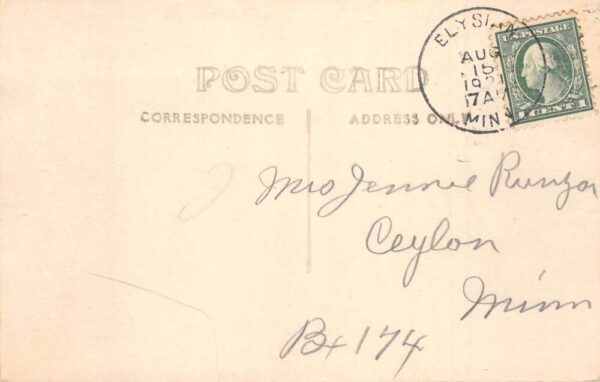 ELYSIAN
AUG
15
192
7 AM
MINN
U.S. POSTAGE
1 CENT 1
POST CARD
CORRESPONDENCE
ADDRESS ONLY
Mrs Jennie
Ceylon
Minn
Bx 174